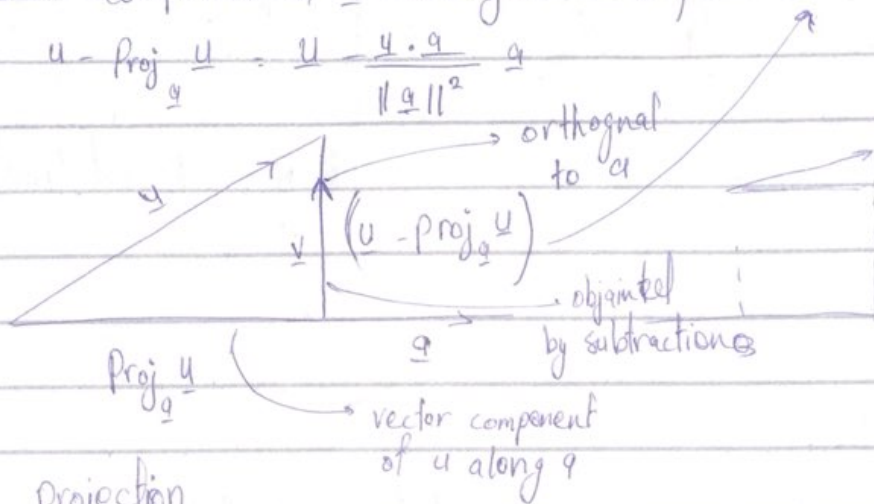 u - Proj_a u = u - u · a / ||a||² a
orthognal
to a
u
v
(u - proj_a u)
by subtraction
a
Proj_a u
vector component
of u along a
projection